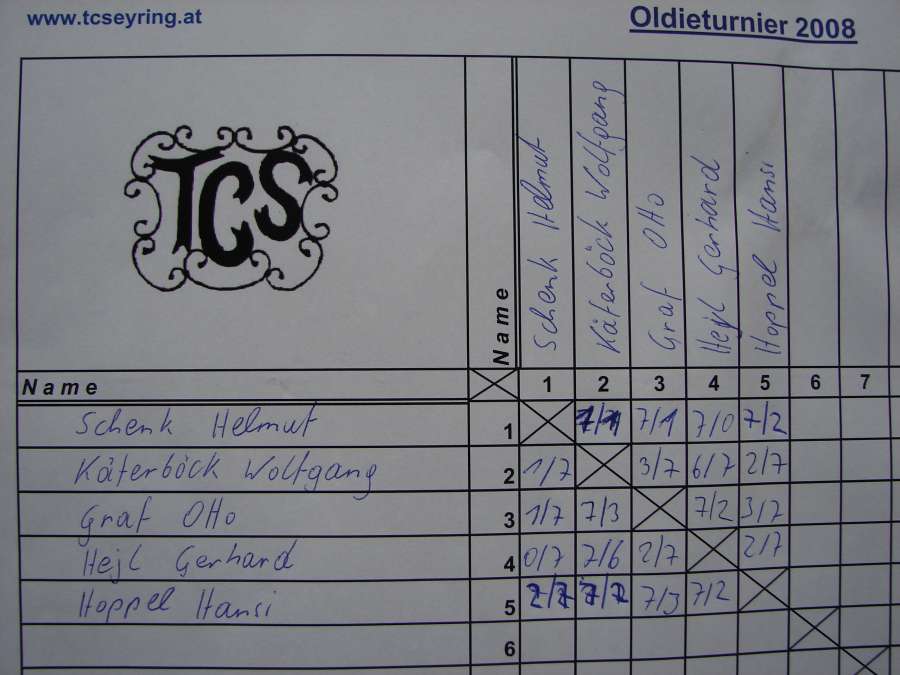 www.tcseyring.at
Oldieturnier 2008
TCS
Name
Schenk Helmut
Käterböck Wolfgang
Graf Otto
Hejl Gerhard
Hoppel Hansi
Name 1 2 3 4 5 6 7
Schenk Helmut 1 7/1 7/1 7/0 7/2
Käterböck Wolfgang 2 1/7 3/7 6/7 2/7
Graf Otto 3 1/7 7/3 7/2 3/7
Hejl Gerhard 4 0/7 7/6 2/7 2/7
Hoppel Hansi 5 2/7 7/2 7/3 7/2
6